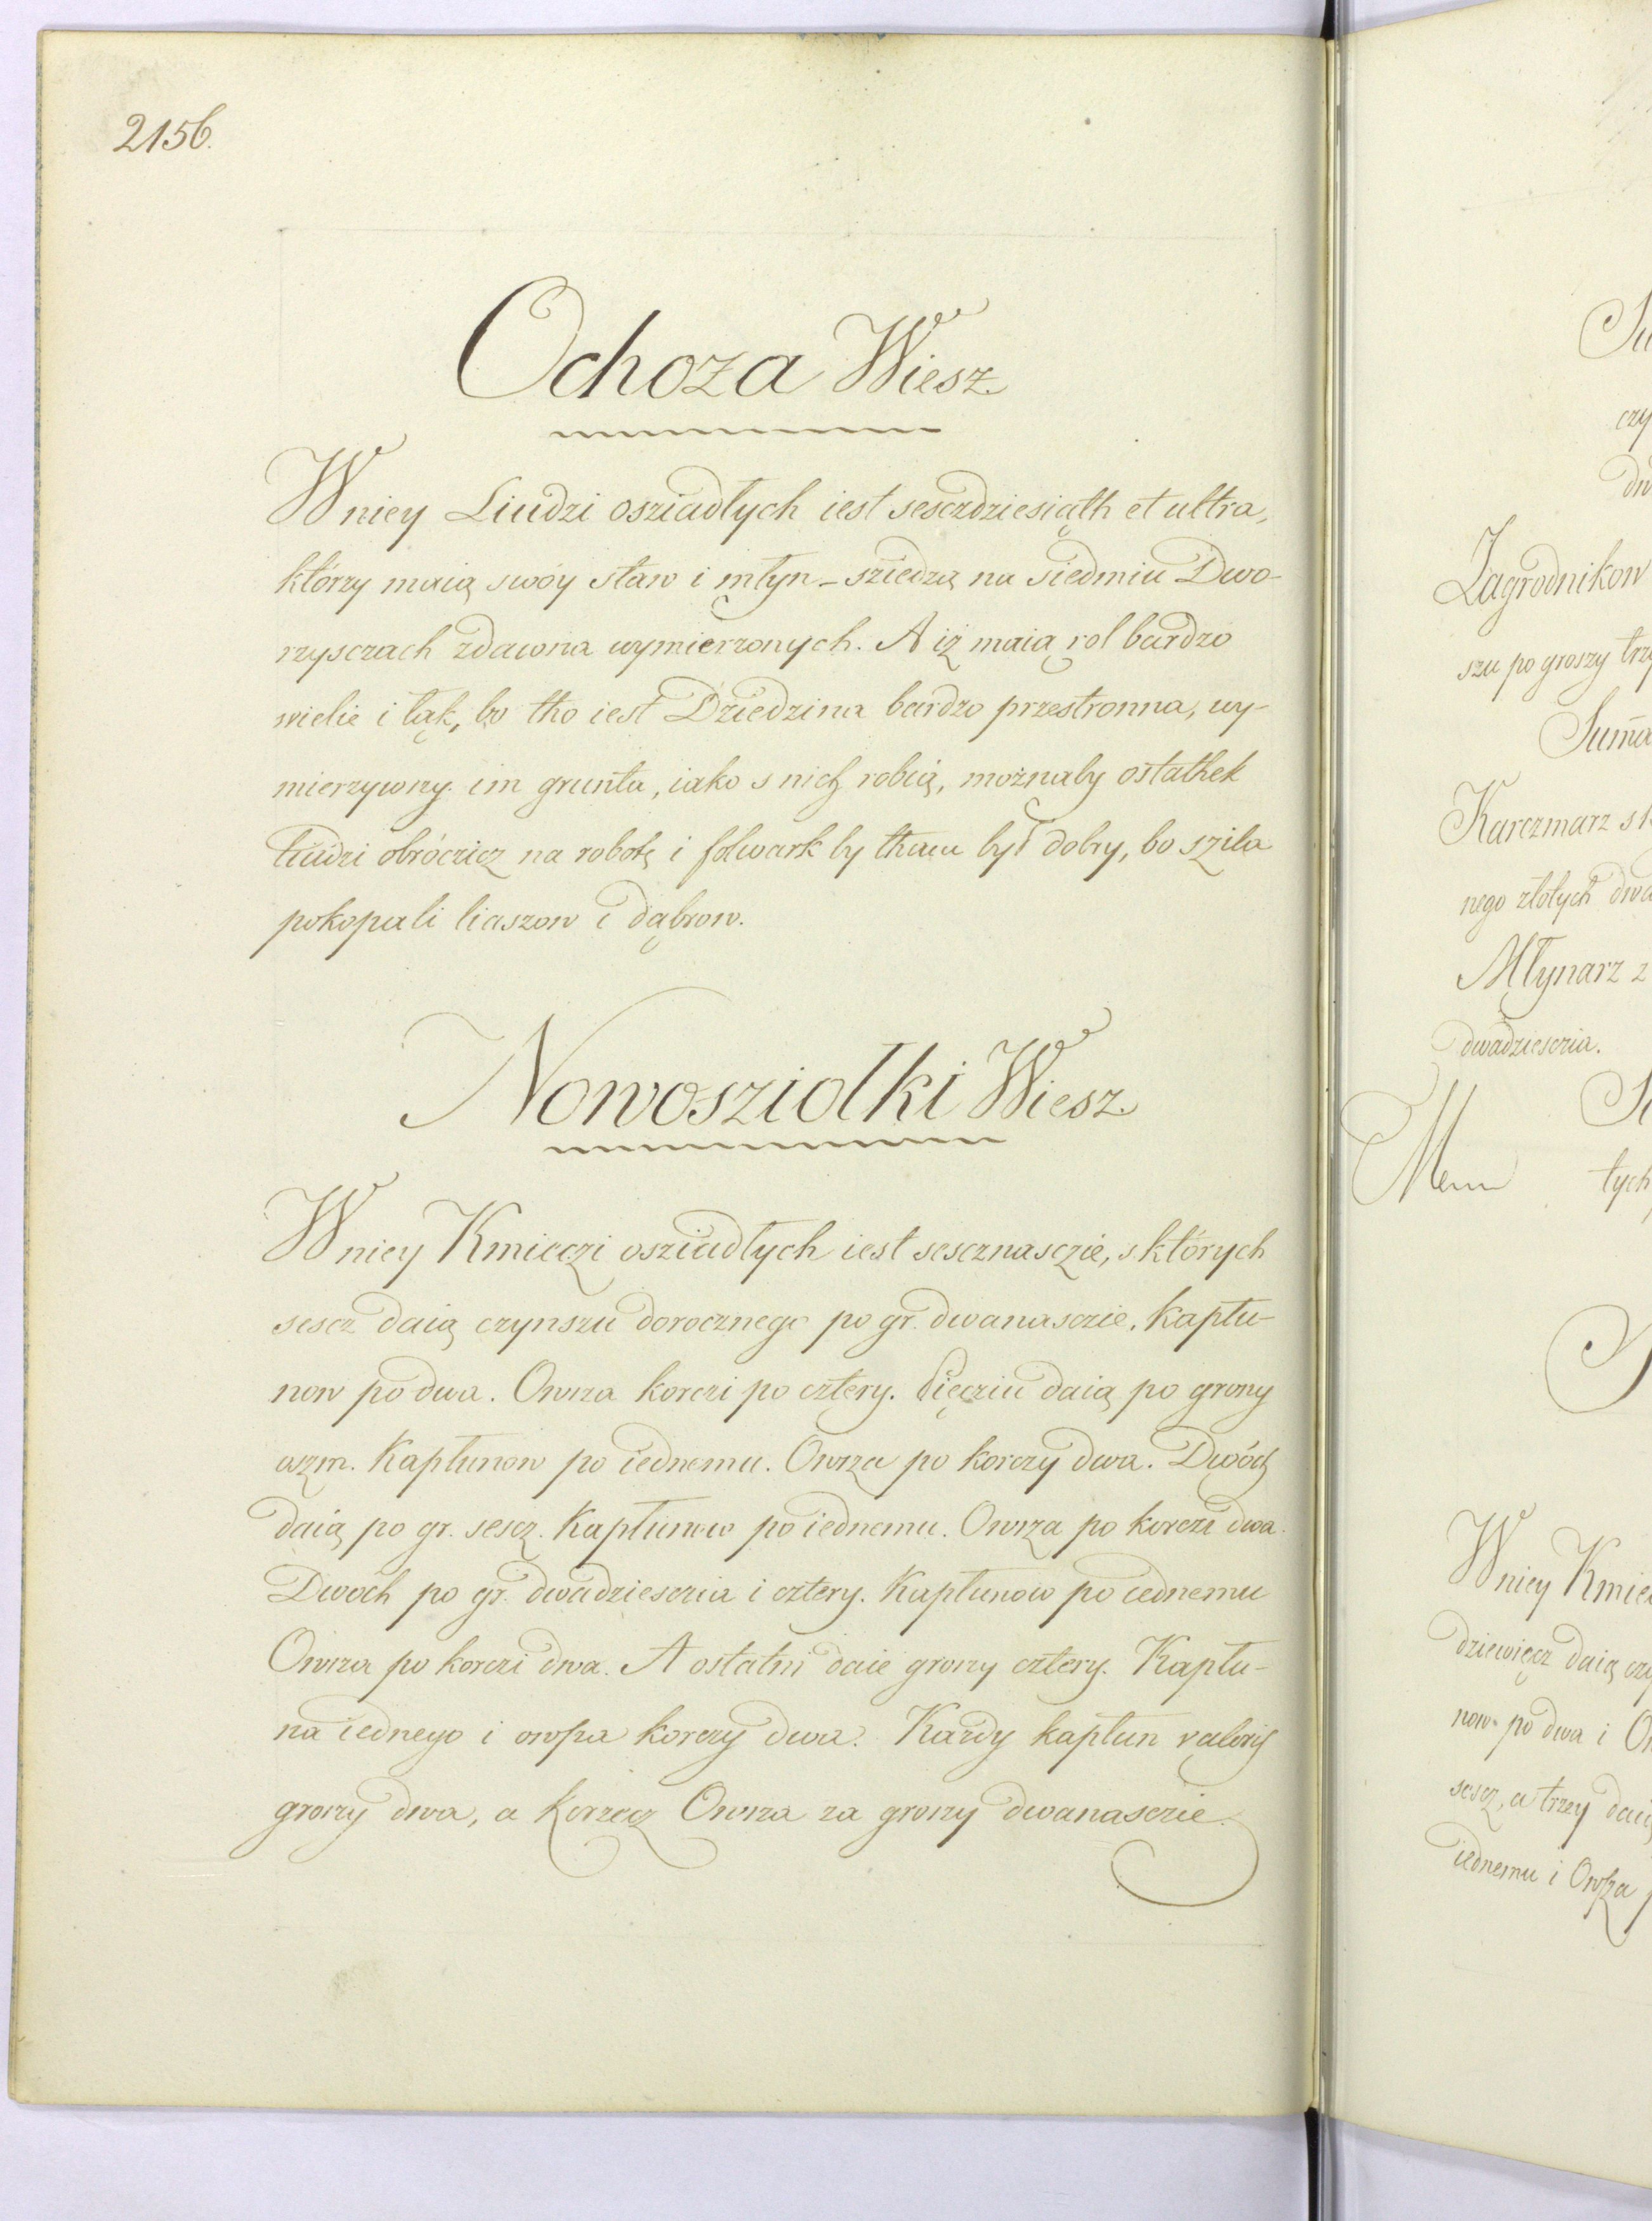 2156.
Ochoza Wiesz
W niey Liudzi osziadłych iest sesczdziesiąth et ultra,
którzy maią swóy staw i młyn – sziedzą na siedmiu Dwo-
rzysczach zdawna wymierzonych. A iż maią rol bardzo
wielie i łąk, bo tho iest Dziedzina bardzo przestronna, wy-
mierzywszy im grunta, iako s nich robią, możnaby ostathek
liudzi obróczicz na robotę i folwark by tham był dobry, bo sziła
pokopali liaszow i dąbrow.
Nowosziołki Wiesz
W niey Kmieczi osziadłych iest sescznasczie, s których
sescz daią czynszu dorocznego po gr. dwanasczie, kapłu-
now po dwa. Owsza korczi po cztery. Pięcziu daią po groszy
oszm. Kapłunow po iednemu. Owsza po korczy dwa. Dwóch
daią po gr. sescz. Kapłunow po iednemu. Owsza po korczi dwa.
Dwóch po gr. dwadziesczia i cztery. Kapłunow po iednemu
Owsza po korczi dwa. A ostatni daie groszy cztery. Kapłu-
na iednego i owsza korczy dwa. Kazdy kapłun valoris
groszy dwa, a korzecz Owsza za groszy dwanasczie.
czy
Zagrodnikow
szu po groszy trzy
Suma
Karczmarz s k
nego złotych dwa
Młynarz z
dwadziesczia.
łych
W niey Kmie
dziewięcz daią czy
now po dwa i O
sescz, a trzey daią
iednemu i Owsza p